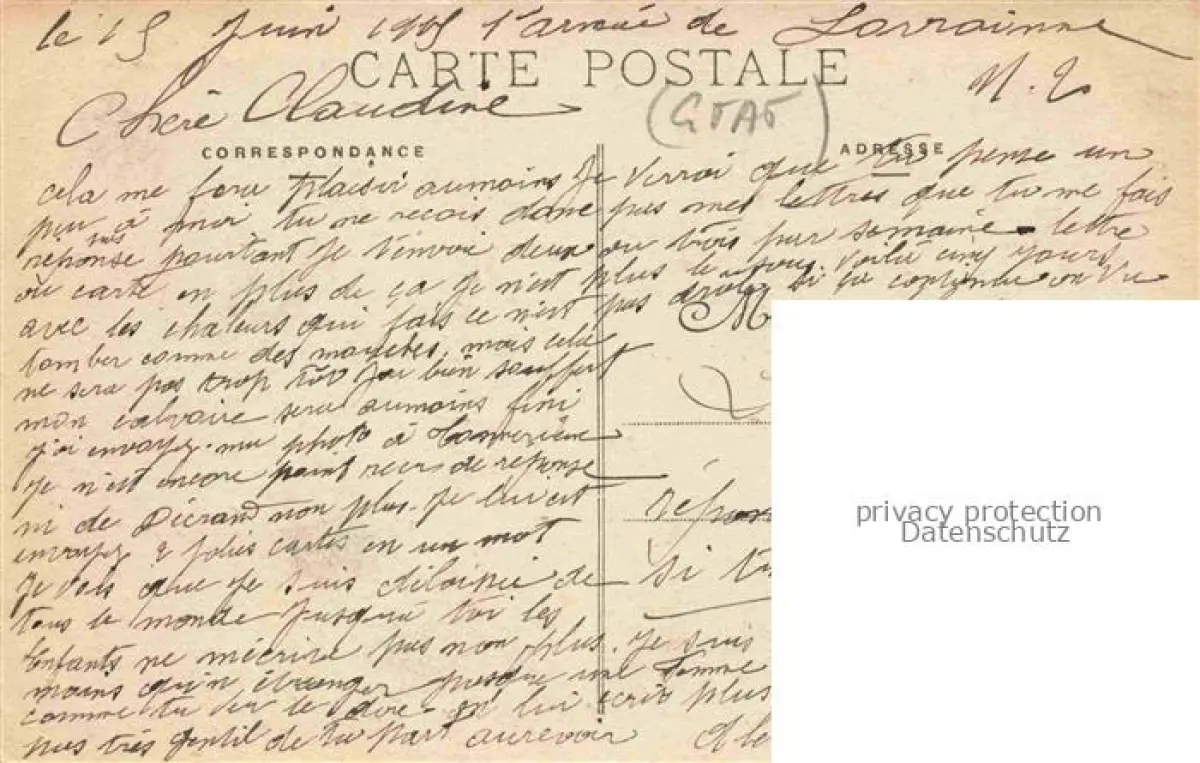 le 15 Juin 1915 1' armée de Lorrainne
CARTE POSTALE
Chère Claudine
CORRESPONDANCE
ADRESSE
cela me fera plaisir aumoins Je verroi que tu pense un
peu à moi tu ne recois donc pas mes lettres que tu me fais
réponse pourtant Je t'envoie deux ou trois par semaine lettre
ou carte en plus de ça Je n'est plus le voilà cinq jours
avec les chaleurs qui fais ce n'est pas drole si ça continue on va
tomber comme des mouches, mais cela
ne sera pas trop tôt J'ai bien souffert
mon calvaire sera aumoins fini
j'ai envoyez ma photo à
Je n'est encore point recus de réponse
ni de non plus. Je lui est
envoyez 2 jolies cartes en un mot
Je vois que je suis de
tous le monde Jusqua toi les
Enfants ne mécrire pas non plus. Je suis
moins qu'un étranger jusque une femme
comme tu le dire lui ecris plus
pas très gentil de ta part aurevoir
si tu
privacy protection
Datenschutz